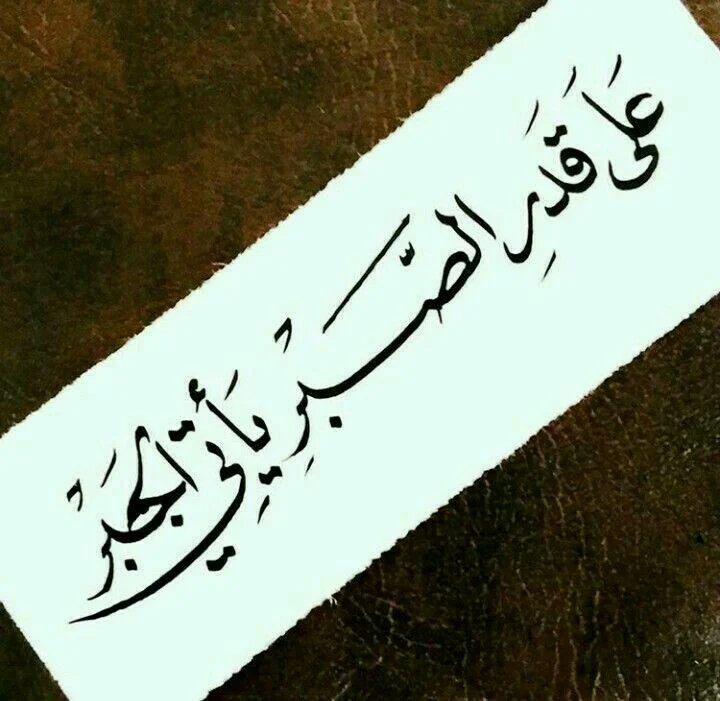 عَلَى قَدَرِ الصَّبْرِ يَأْتِي الجَبْرُ